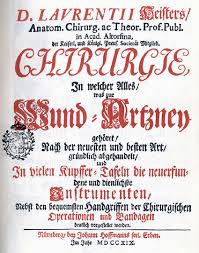 D. LAVRENTII Heisters/
Anatom. Chirurg. ac Theor. Prof. Publ.
in Acad. Altorfina,
der Kaiserl. und Königl. Preuß. Societät Mitglied,
CHIRURGIE,
In welcher Alles/
was zur
Wund-Artzney
gehöret/
Nach der neuesten und besten Art/
gründlich abgehandelt/
und
In vielen Kupffer-Tafeln die neuerfun-
dene und dienlichste
Instrumenten,
Nebst den bequemsten Handgriffen der Chirurgischen
Operationen und Bandagen
deutlich vorgestellet werden.
Nürnberg/ bey Johann Hoffmanns sel. Erben.
Im Jahr MDCCXIX.